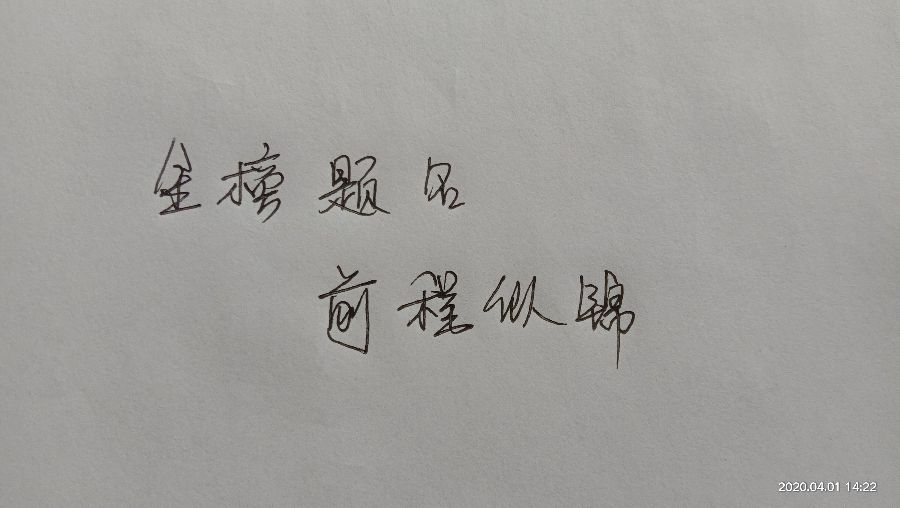 金榜题名
前程似锦
2020.04.01 14:22